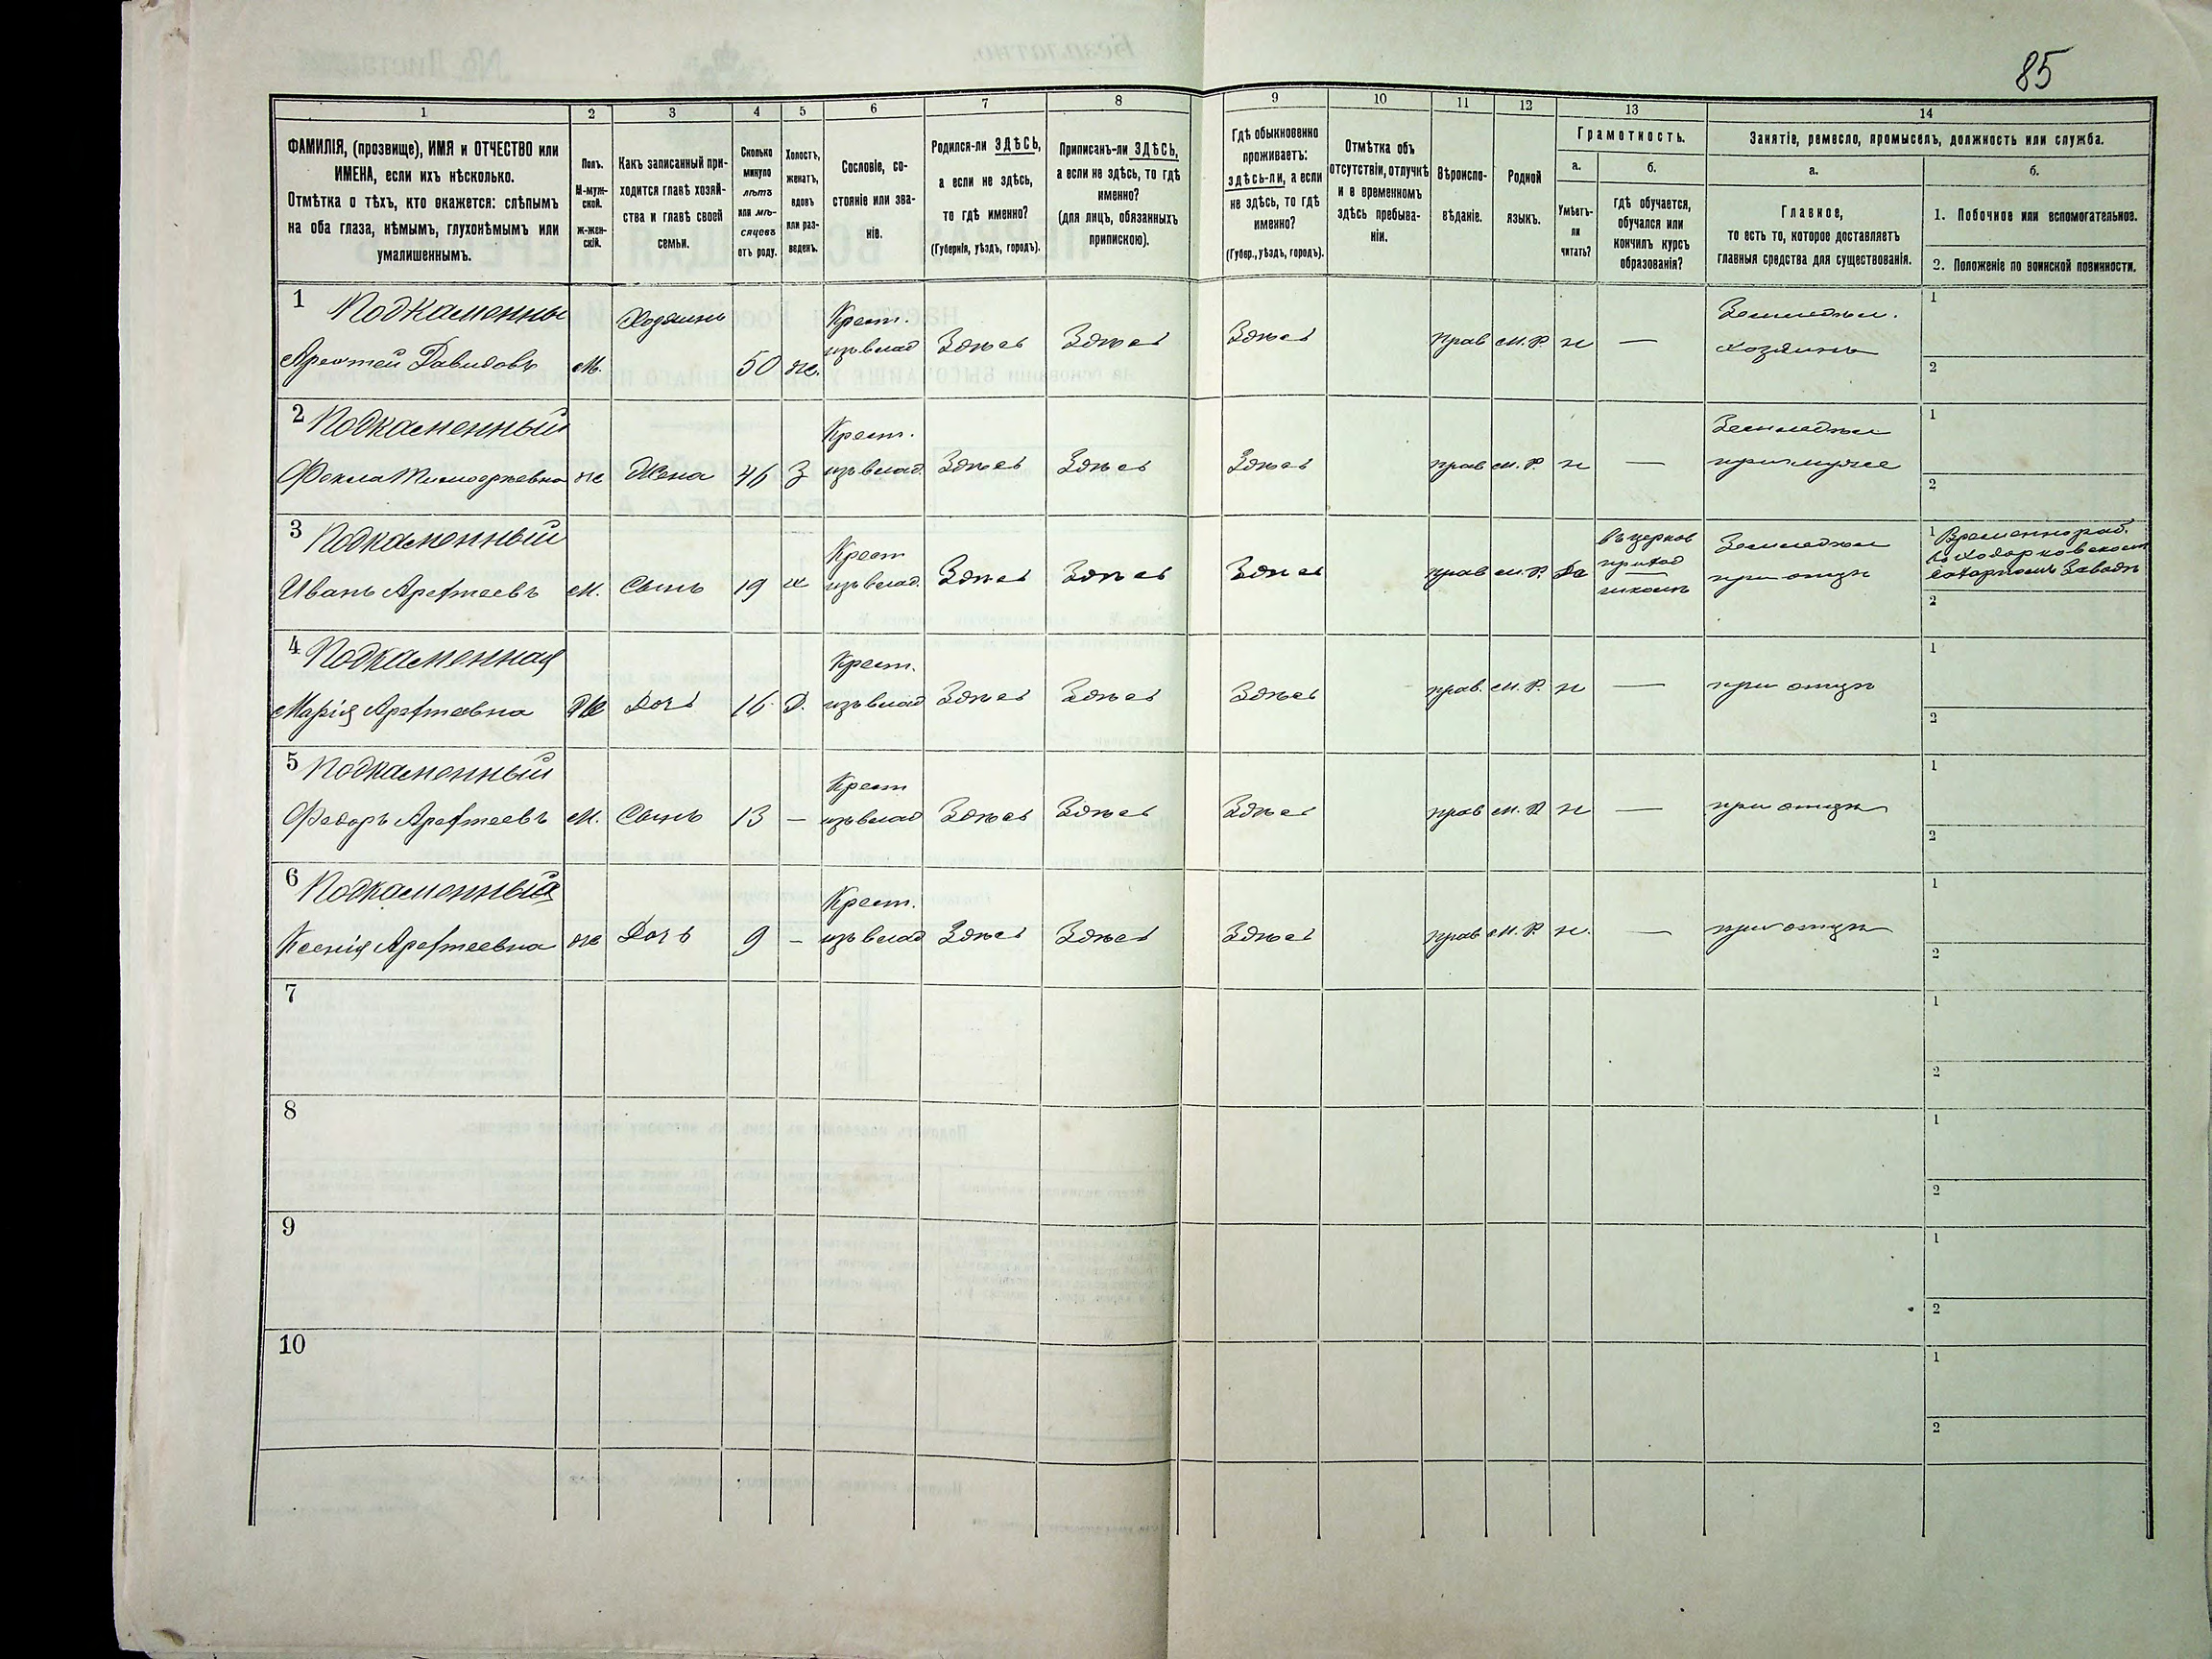 85
1 2 3 4 5 6 7 8 9 10 11 12 13 14
ФАМИЛІЯ, (прозвище), ИМЯ и ОТЧЕСТВО или
ИМЕНА, если ихъ нѣсколько.
Отмѣтка о тѣхъ, кто окажется: слѣпымъ
на оба глаза, нѣмымъ, глухонѣмымъ или
умалишеннымъ.
Полъ.
М-муж-
ской.
Ж-жен-
скій.
Какъ записанный при-
ходится главѣ хозяй-
ства и главѣ своей
семьи.
Сколько
минуло
лѣтъ
или мѣ-
сяцевъ
отъ роду.
Холостъ,
женатъ,
вдовъ
или раз-
веденъ.
Сословіе, со-
стояніе или зва-
ніе.
Родился-ли ЗДѢСЬ,
а если не здѣсь,
то гдѣ именно?
(Губернія, уѣздъ, городъ).
Приписанъ-ли ЗДѢСЬ,
а если не здѣсь, то гдѣ
именно?
(для лицъ, обязанныхъ
припискою).
Гдѣ обыкновенно
проживаетъ:
здѣсь-ли, а если
не здѣсь, то гдѣ
именно?
(Губер., уѣздъ, городъ).
Отмѣтка объ
отсутствіи, отлучкѣ
и о временномъ
здѣсь пребыва-
ніи.
Вѣроиспо-
вѣданіе.
Родной
языкъ.
Грамотность.
а.
Умѣетъ-
ли
читать?
б.
гдѣ обучается,
обучался или
кончилъ курсъ
образованія?
Занятіе, ремесло, промыселъ, должность или служба.
а.
Главное,
то есть то, которое доставляетъ
главныя средства для существованія.
б.
1. Побочное или вспомогательное.
2. Положеніе по воинской повинности.
1 Подкаменны Хозяинъ Крест. Земледѣл. 1
Арефтей Давидовъ М. 50 ж. изъ влад Здѣсь Здѣсь Здѣсь прав м. Р. н — хозяинъ 2
2 Подкаменный Крест. Земледѣл 1
Фекла Тимофѣевна ж Жена 46 З изъ влад. Здѣсь Здѣсь Здѣсь прав м. Р. н — при мужѣ 2
3 Подкаменный Крест въ церков Земледѣл 1 Временно раб.
Иванъ Арефтеевъ М. Сынъ 19 х изъ влад. Здѣсь Здѣсь Здѣсь прав м. Р. Да приход при отцѣ въ Ходорковском
школѣ сахарномъ Заводѣ
2
4 Подкаменная Крест. 1
Марія Арефтеевна Ж Дочь 16 Д. изъ влад Здѣсь Здѣсь Здѣсь прав. м. Р. н — при отцѣ 2
5 Подкаменный Крест 1
Федоръ Арефтеевъ М. Сынъ 13 — изъ влад Здѣсь Здѣсь Здѣсь прав м. Р н — при отцѣ 2
6 Подкаменныя Крест. 1
Ксенія Арефтеевна ж Дочь 9 — изъ влад Здѣсь Здѣсь Здѣсь прав м. Р. н. — при отцѣ 2
7 1
2
8 1
2
9 1
2
10 1
2